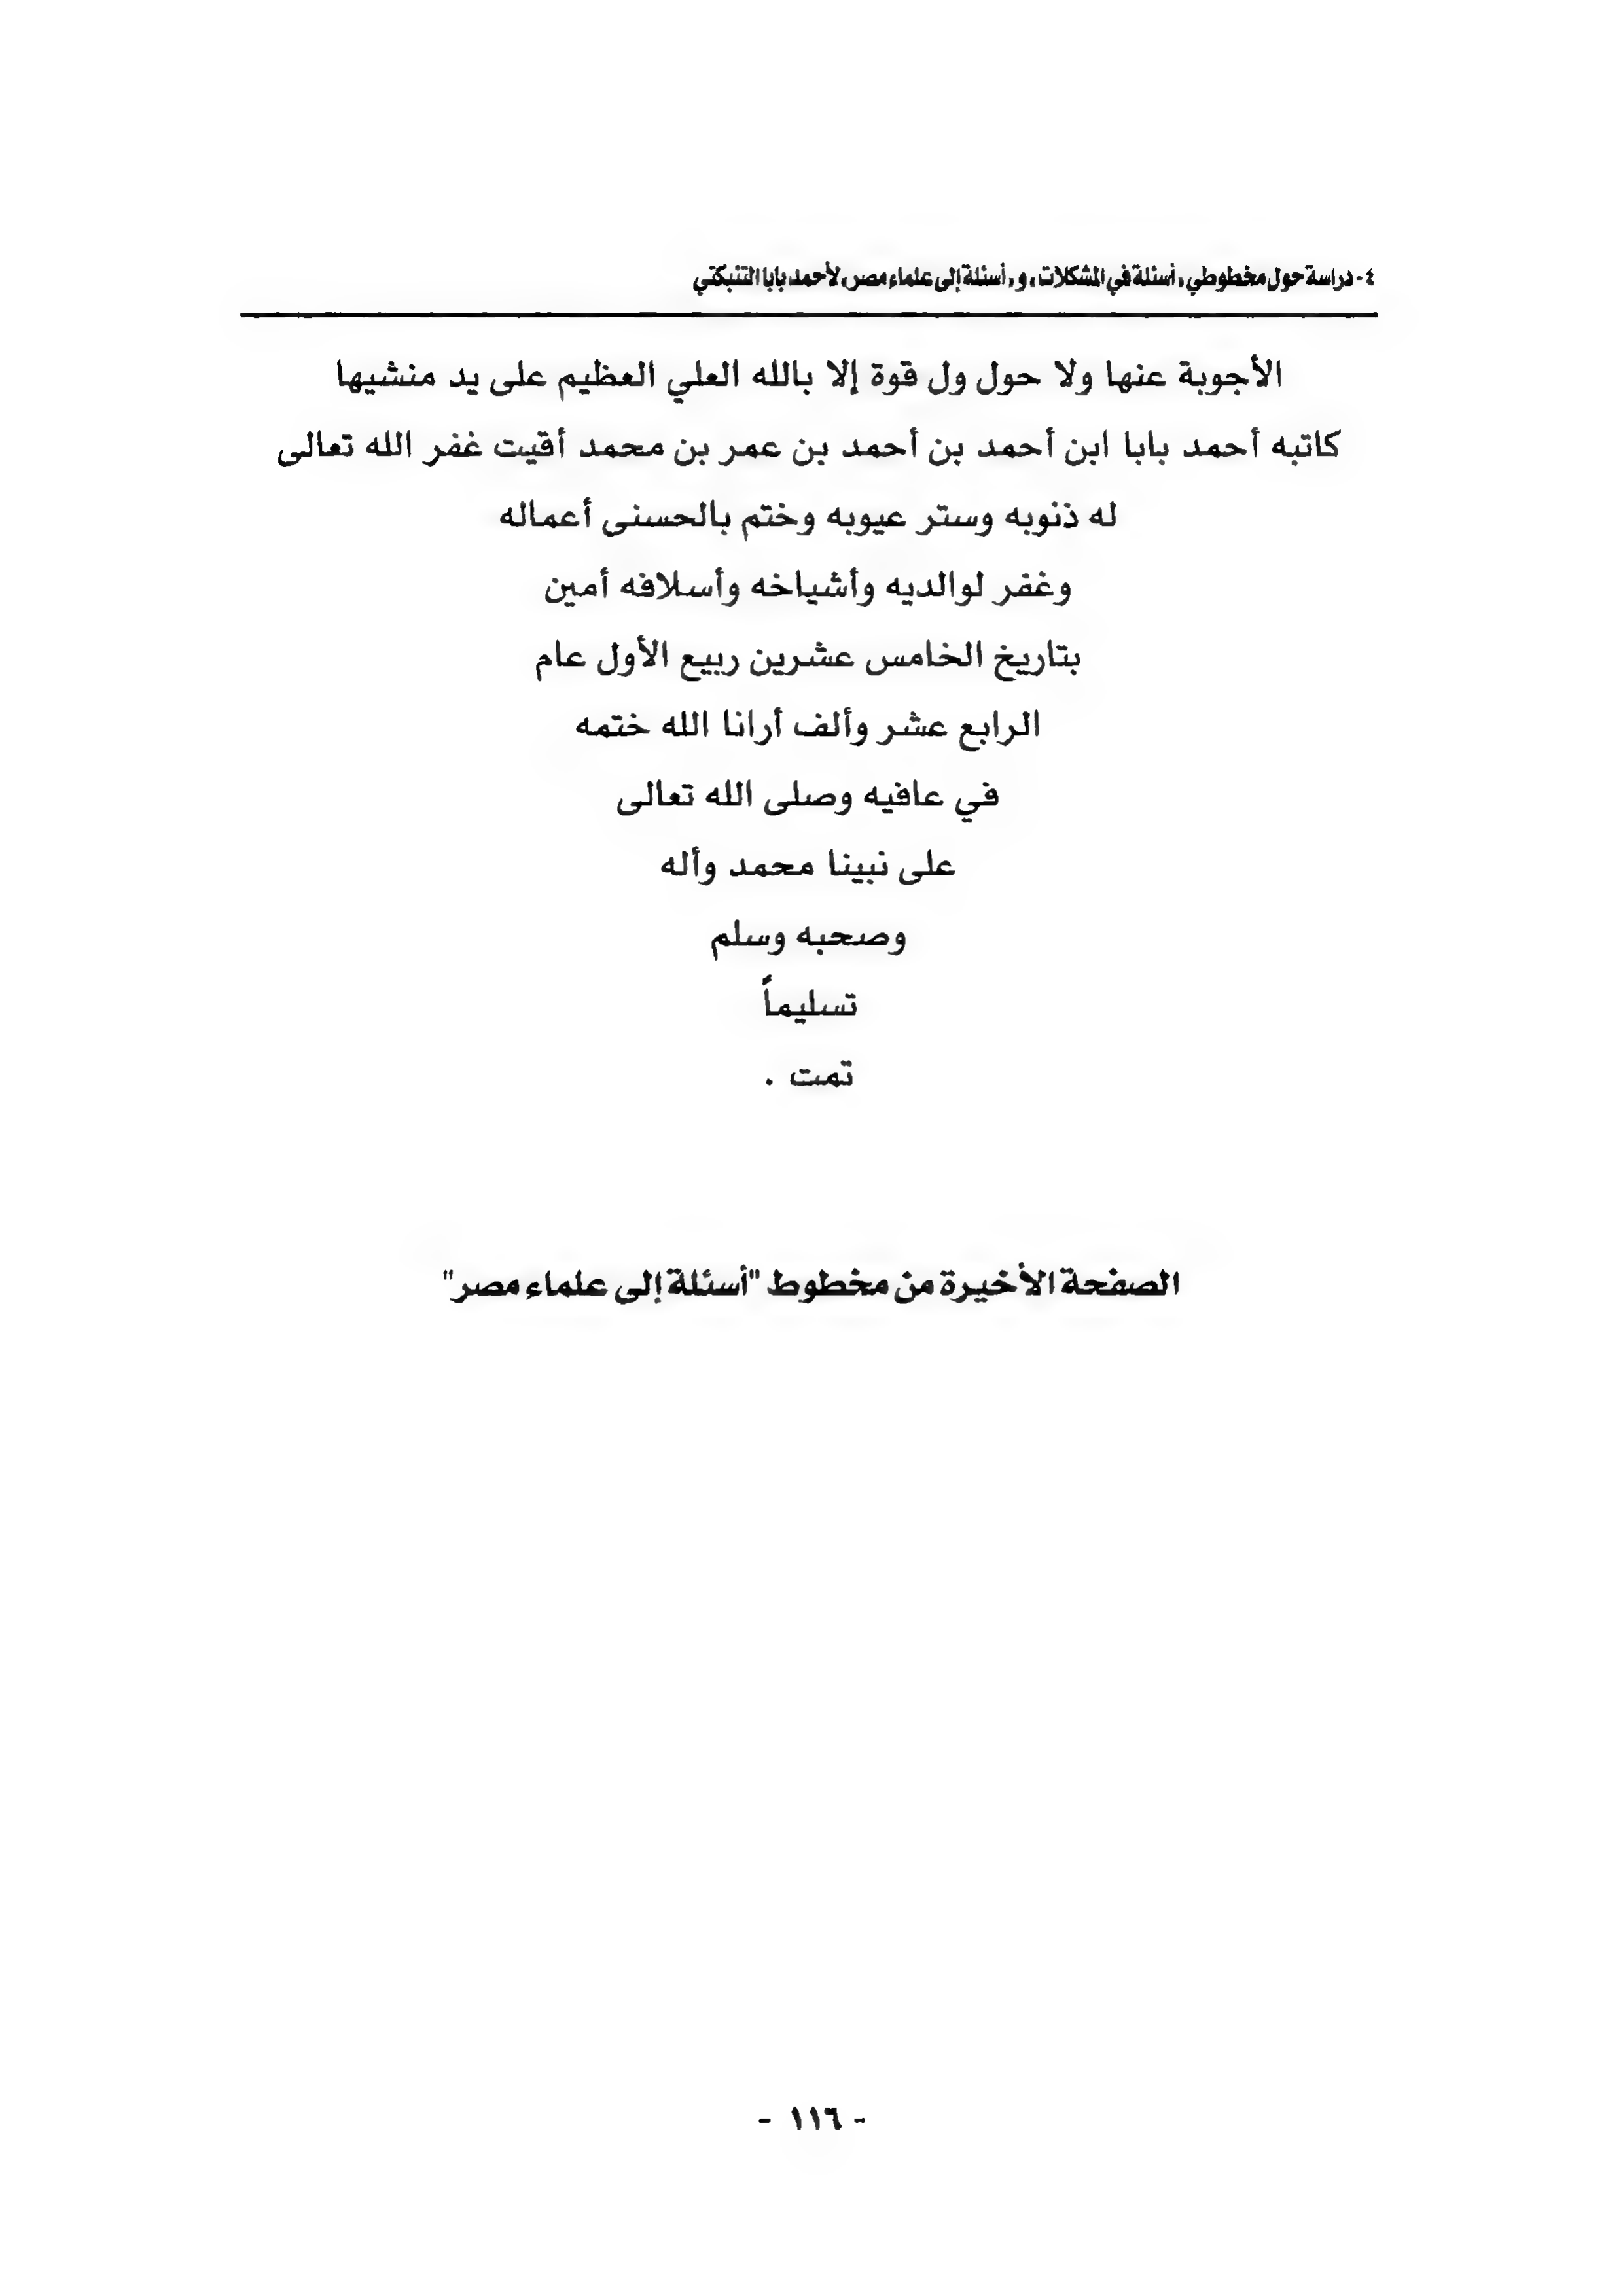 ٤- دراسة حول مخطوطي ، أسئلة في المشكلات ، و ، أسئلة إلى علماء مصر، لأحمد بابا التنبكتي
الأجوبة عنها ولا حول ول قوة إلا بالله العلي العظيم على يد منشيها
كاتبه أحمد بابا ابن أحمد بن أحمد بن عمر بن محمد أقيت غفر الله تعالى
له ذنوبه وستر عيوبه وختم بالحسنى أعماله
وغفر لوالديه وأشياخه وأسلافه أمين
بتاريخ الخامس عشرين ربيع الأول عام
الرابع عشر وألف أرانا الله ختمه
في عافيه وصلى الله تعالى
على نبينا محمد وأله
وصحبه وسلم
تسليماً
تمت .
الصفحة الأخيرة من مخطوط "أسئلة إلى علماء مصر"
- ١١٦ -